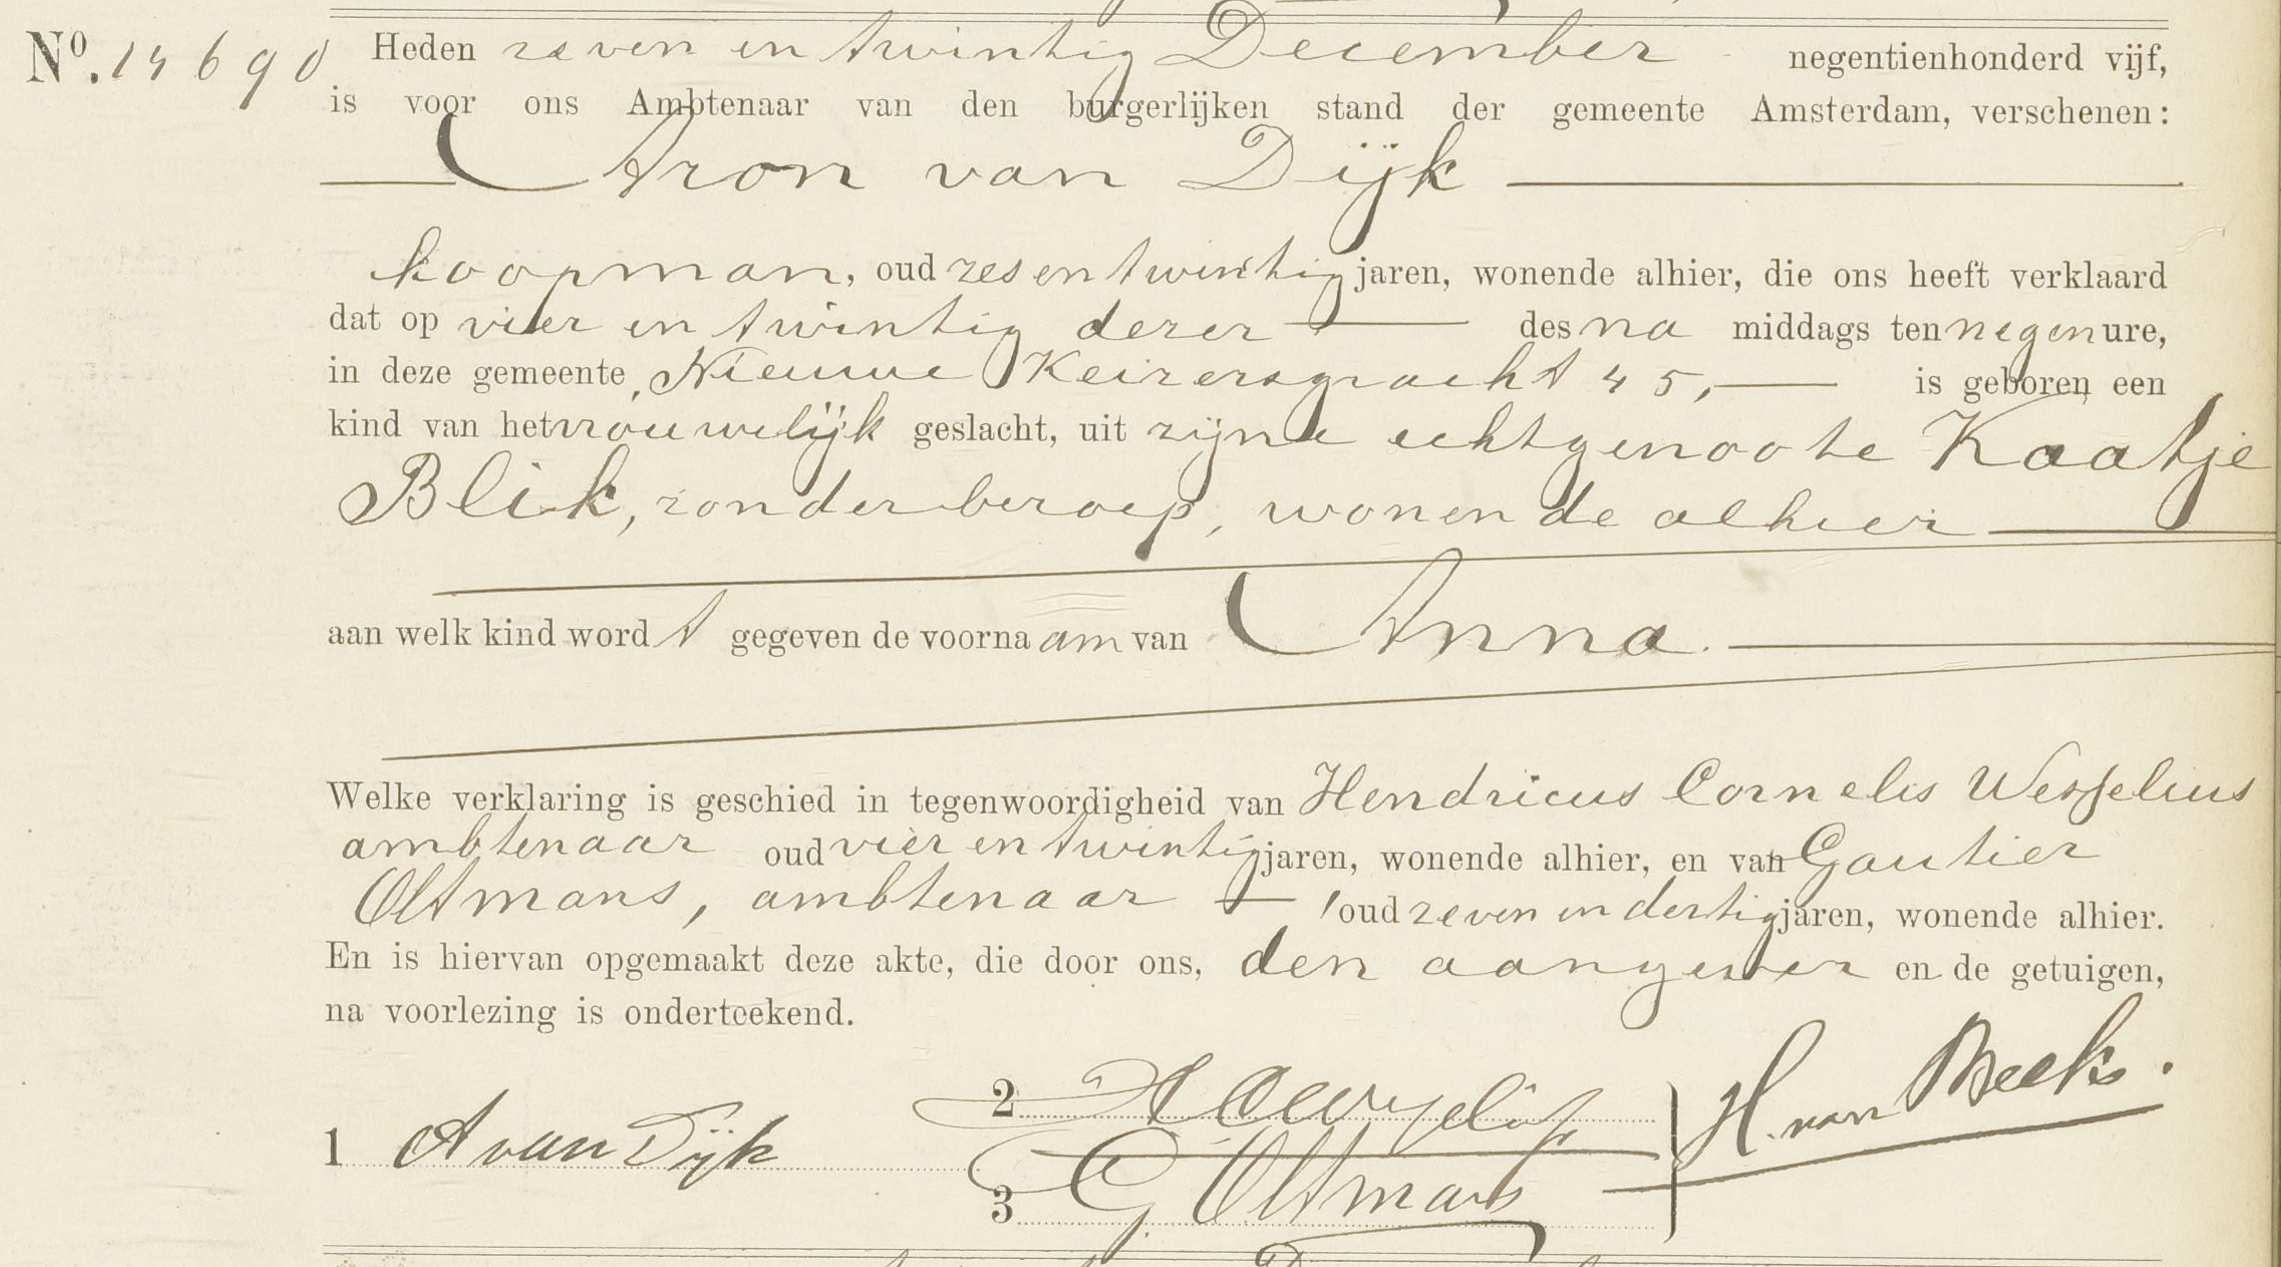 Nº. 14690 Heden zeven en twintig December negentienhonderd vijf,
is voor ons Ambtenaar van den burgerlijken stand der gemeente Amsterdam, verschenen:
Aron van Dijk
koopman, oud zes en twintig jaren, wonende alhier, die ons heeft verklaard
dat op vier en twintig dezer des na middags ten negen ure,
in deze gemeente, Nieuwe Keizersgracht 45, is geboren een
kind van het vrouwelijk geslacht, uit zijne echtgenoote Kaatje
Blik, zonder beroep, wonende alhier
aan welk kind wordt gegeven de voornaam van Anna.
Welke verklaring is geschied in tegenwoordigheid van Hendricus Cornelis Wesselius
ambtenaar oud vier en twintig jaren, wonende alhier, en van Gautier
Oltmans, ambtenaar oud zeven en dertig jaren, wonende alhier.
En is hiervan opgemaakt deze akte, die door ons, den aangever en de getuigen,
na voorlezing is onderteekend.
2 H. van Beek.
1 A van Dijk
3 G Oltmans